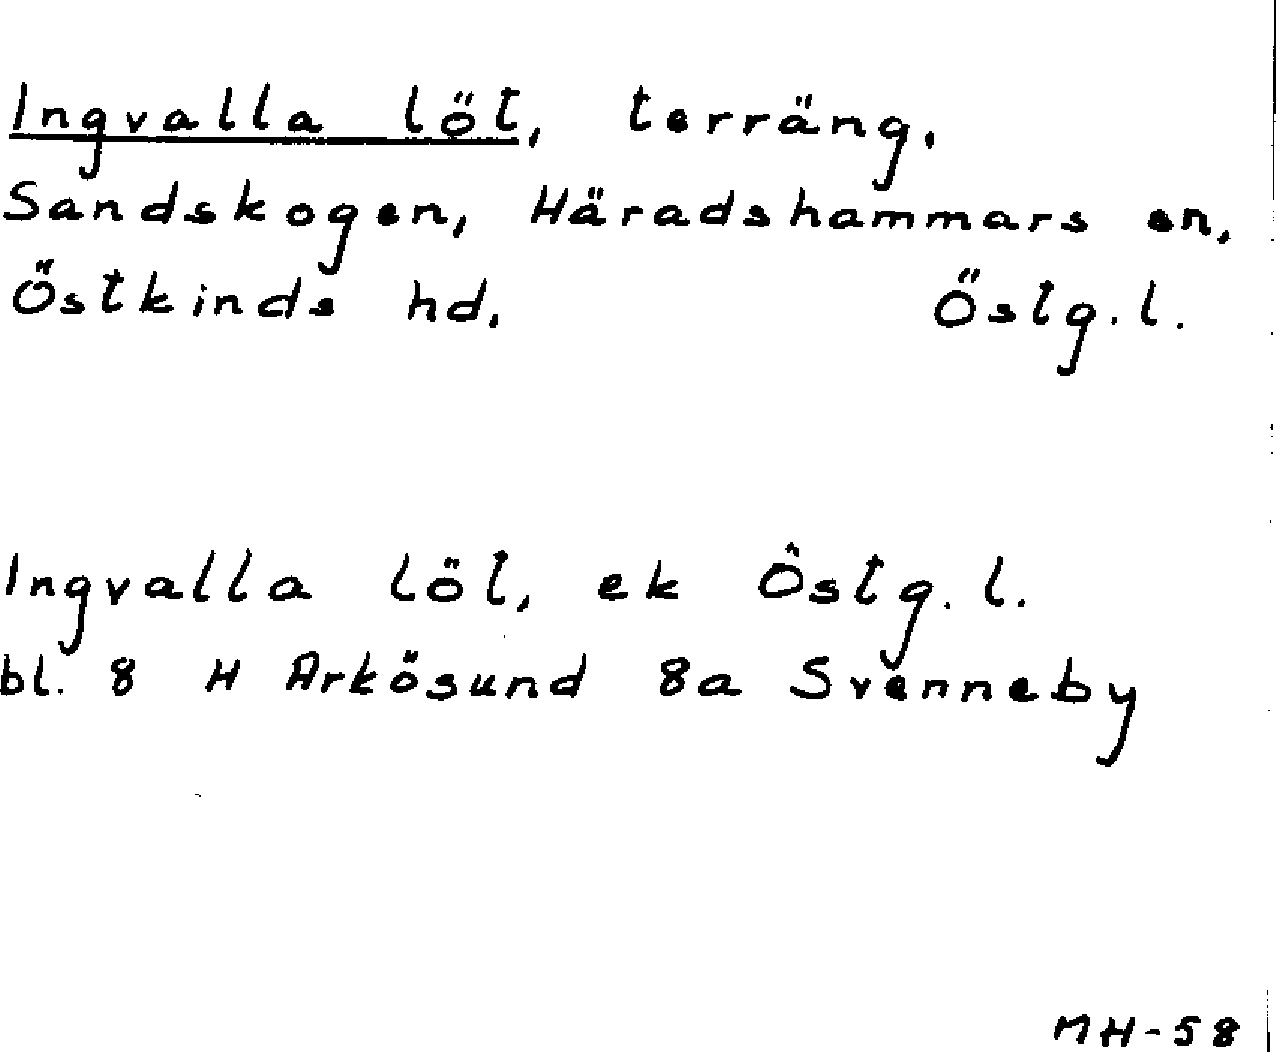 Ingvalla löt, terräng,
Sandskogen, Häradshammars sn,
Östkinds hd, Östg.l.
Ingvalla löt, ek Östg.l.
bl. 8 H Arkösund 8a Svenneby
MH-58